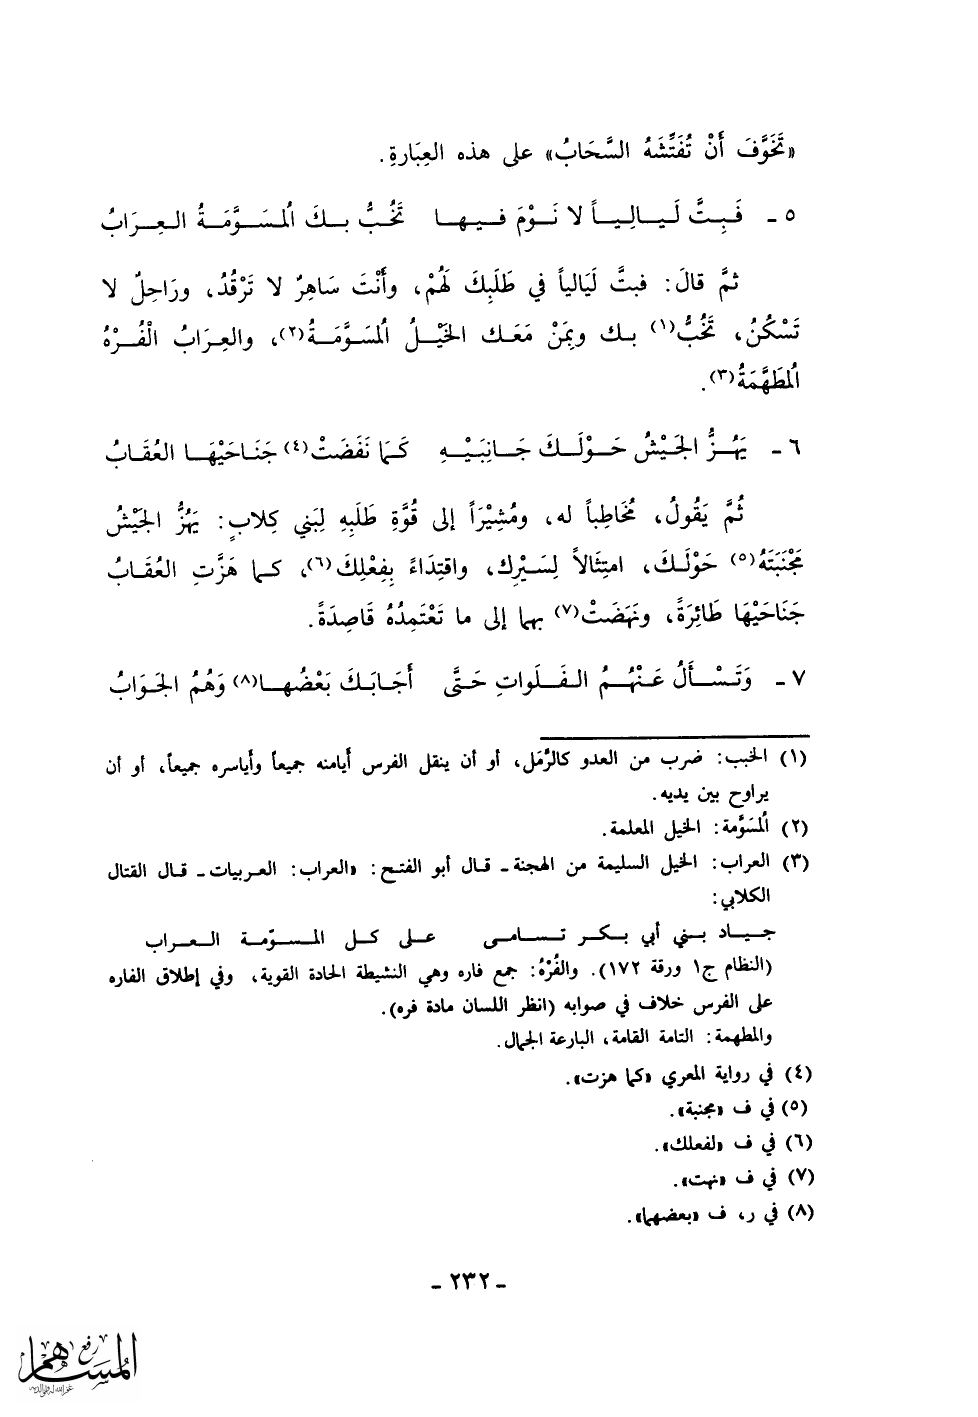 «تَخَوَّفَ أَنْ تُفَتِّشَهُ السَّحَابُ» على هذه العِبَارةِ.
٥ - فَبِتَّ لَيَالِياً لا نَوْمَ فيها تَخُبُّ بِكَ المُسَوَّمَةُ العِرَابُ
ثمَّ قالَ: فبتَّ لَيَالياً في طَلَبِكَ لَهُمْ، وأَنْتَ سَاهِرٌ لا تَرْقُدُ، ورَاحِلٌ لا
تَسْكُنُ، تَخُبُّ(١) بك وبِمَنْ مَعَك الخَيْلُ المُسَوَّمَةُ(٢)، والعِرَابُ الْفُرْهُ
المُطَهَّمَةُ(٣).
٦ - يَهُزُّ الجَيْشُ حَوْلَكَ جَانِبَيْهِ كَمَا نَفَضَتْ(٤) جَنَاحَيْهَا العُقَابُ
ثُمَّ يَقُولُ، مُخَاطِباً له، ومُشِيْرَاً إلى قُوَّةِ طَلَبِهِ لِبَني كِلابٍ: يَهُزُّ الجَيْشُ
مَجْنَبَتَهُ(٥) حَوْلَكَ، امتِثَالاً لِسَيْرِك، واقتِدَاءً بِفِعْلِكَ(٦)، كما هَزَّتِ العُقَابُ
جَنَاحَيْهَا طَائِرَةً، ونَهَضَتْ(٧) بهما إلى ما تَعْتَمِدُهُ قَاصِدَةً.
٧ - وَتَسْأَلُ عَنْهُمُ الفَلَواتِ حَتَّى أَجَابَكَ بَعْضُها(٨) وَهُمُ الجَوَابُ
(١) الخبب: ضرب من العدو كالرَّمَل، أو أن ينقل الفرس أيامنه جميعاً وأياسره جميعاً، أو أن
يراوح بين يديه.
(٢) المُسَوَّمة: الخيل المعلمة.
(٣) العراب: الخيل السليمة من الهجنة - قال أبو الفتح: «العراب: العربيات - قال القتال
الكلابي:
جياد بني أبي بكر تسامى على كل المسوّمة العراب
(النظام ج١ ورقة ١٧٢). والفُرْهُ: جمع فاره وهي النشيطة الحادة القوية، وفي إطلاق الفاره
على الفرس خلاف في صوابه (انظر اللسان مادة فره).
والمطهمة: التامة القامة، البارعة الجمال.
(٤) في رواية المعري «كما هزت».
(٥) في ف «مجنبة».
(٦) في ف «لفعلك».
(٧) في ف «نهت».
(٨) في ر، ف «بعضهما».
- ٢٣٢ -
رفع
المساهم